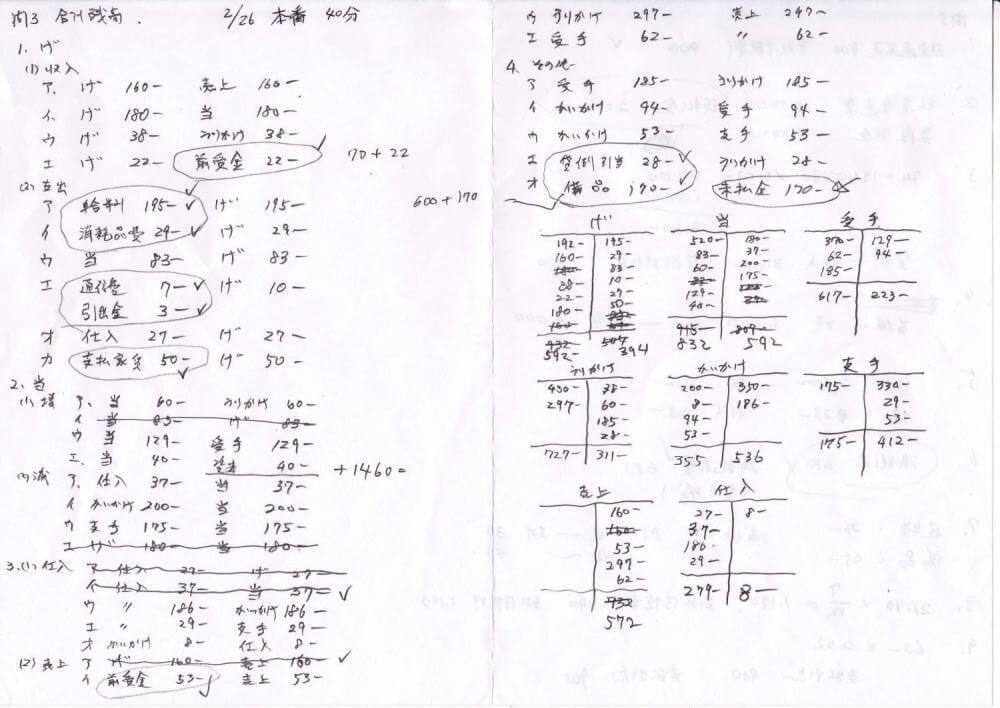 問3 合計残高. 2/26 本番 40分
1. げ
(1) 収入
ア、 げ 160- 売上 160-
イ、 げ 180- 当 180-
ウ げ 38- うりかけ 38-
エ げ 22- 前受金 22- 70+22
(2) 支出
ア 給料 195- げ 195-
イ 消耗品費 29- げ 29-
ウ 当 83- げ 83-
エ 通信費 7- げ 10-
引出金 3-
オ 仕入 27- げ 27-
カ 支払家賃 50- げ 50-
2、当
(1) 増 ア、当 60- うりかけ 60-
イ 当 83- げ 83-
ウ 当 129- 受手 129-
エ、当 40- 40- +1460-
(2) 減 ア、仕入 37- 当 37-
イ かいかけ 200- 当 200-
ウ 支手 175- 当 175-
エ げ 180- 当 180-
3、(1) 仕入 ア 仕入 27- げ 27-
イ 仕入 37- 当 37-
ウ 〃 186- かいかけ 186-
エ 〃 29- 支手 29-
オ かいかけ 8- 仕入 8-
(2) 売上 ア げ 160- 売上 160-
イ 前受金 53- 売上 53-
ウ うりかけ 297- 売上 297-
エ 受手 62- 〃 62-
4、その他
ア 受手 185- うりかけ 185-
イ かいかけ 94- 受手 94-
ウ かいかけ 53- 支手 53-
エ 貸倒引当 28- うりかけ 28-
オ 備品 170- 未払金 170-
600+170
げ 当 受手
192- 195- 520- 180- 370- 129-
160- 29- 83- 37- 62- 94-
83- 60- 200- 185-
38- 10- 175-
22- 29- 129- 617- 223-
180- 50- 40-
915- 809-
592- 394 832 592
うりかけ かいかけ 支手
430- 38- 200- 350- 175- 330-
297- 60- 8- 186- 29-
185- 94- 53-
28- 53-
727- 311- 355 536 175- 412-
売上 仕入
160- 27- 8-
160- 37-
53- 186-
297- 29-
62-
732 279- 8-
572